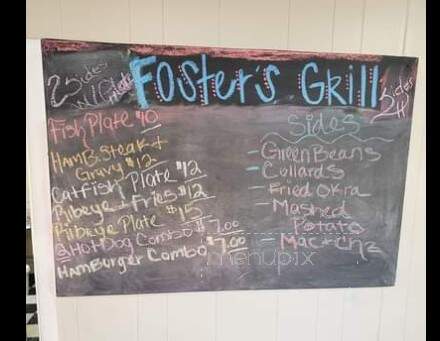 2 Sides
w/Plate
Foster's Grill
Sides
4
Fish Plate $10
HamB. Steak +
Gravy $12
Catfish Plate $12
Ribeye + Fries $12
Ribeye Plate $15
2 Hot Dog Combo $7.00
Hamburger Combo $7.00
Sides
- Green Beans
- Collards
- Fried Okra
- Mashed
Potato
- Mac + Chz
menupix